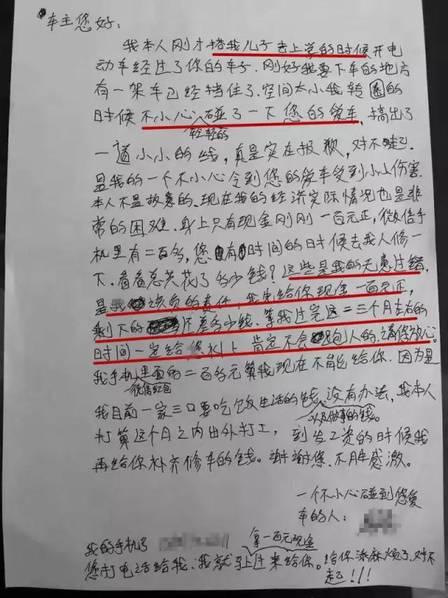 车主您好:
我本人刚才搭我儿子去上学的时候开电
动车经过了你的车子.刚好我要下车的地方
有一架车已经挡住了.空间太小我转圈的
时候不小心碰了一下您的爱车,搞出了
轻轻的
一道小小的线,真是实在报歉,对不起!
是我的一个不小心令到您的爱车受到小小伤害.
本人不是故意的.现在我的经济实际情况也是非
常的困难.身上只有现金刚刚一百元正,微信手
机里有二百多,您有时间的时候去找人修一
下.看看总共花了多少钱?这些是我的无意过错,
是我该负的责任.我先给你现金一百元正,
剩下的差多少钱.等我过完这二三个月左右的
时间一定给您补上肯定不会跑人的.请你放心.
我手机里面的二百多元算我现在不能给你.因为是
微信红包
我目前一家三口要吃饭生活的钱,没有办法,我本人
以及做事的钱。
打算这个月之内出外打工,到发工资的时候我
再给你补齐修车的钱。谢谢您.不胜感激。
一个不小心碰到您爱
车的人:
我的手机了
拿一百元现金
您打电话给我.我就马上过来给你。给你添麻烦了.对不
起!!!